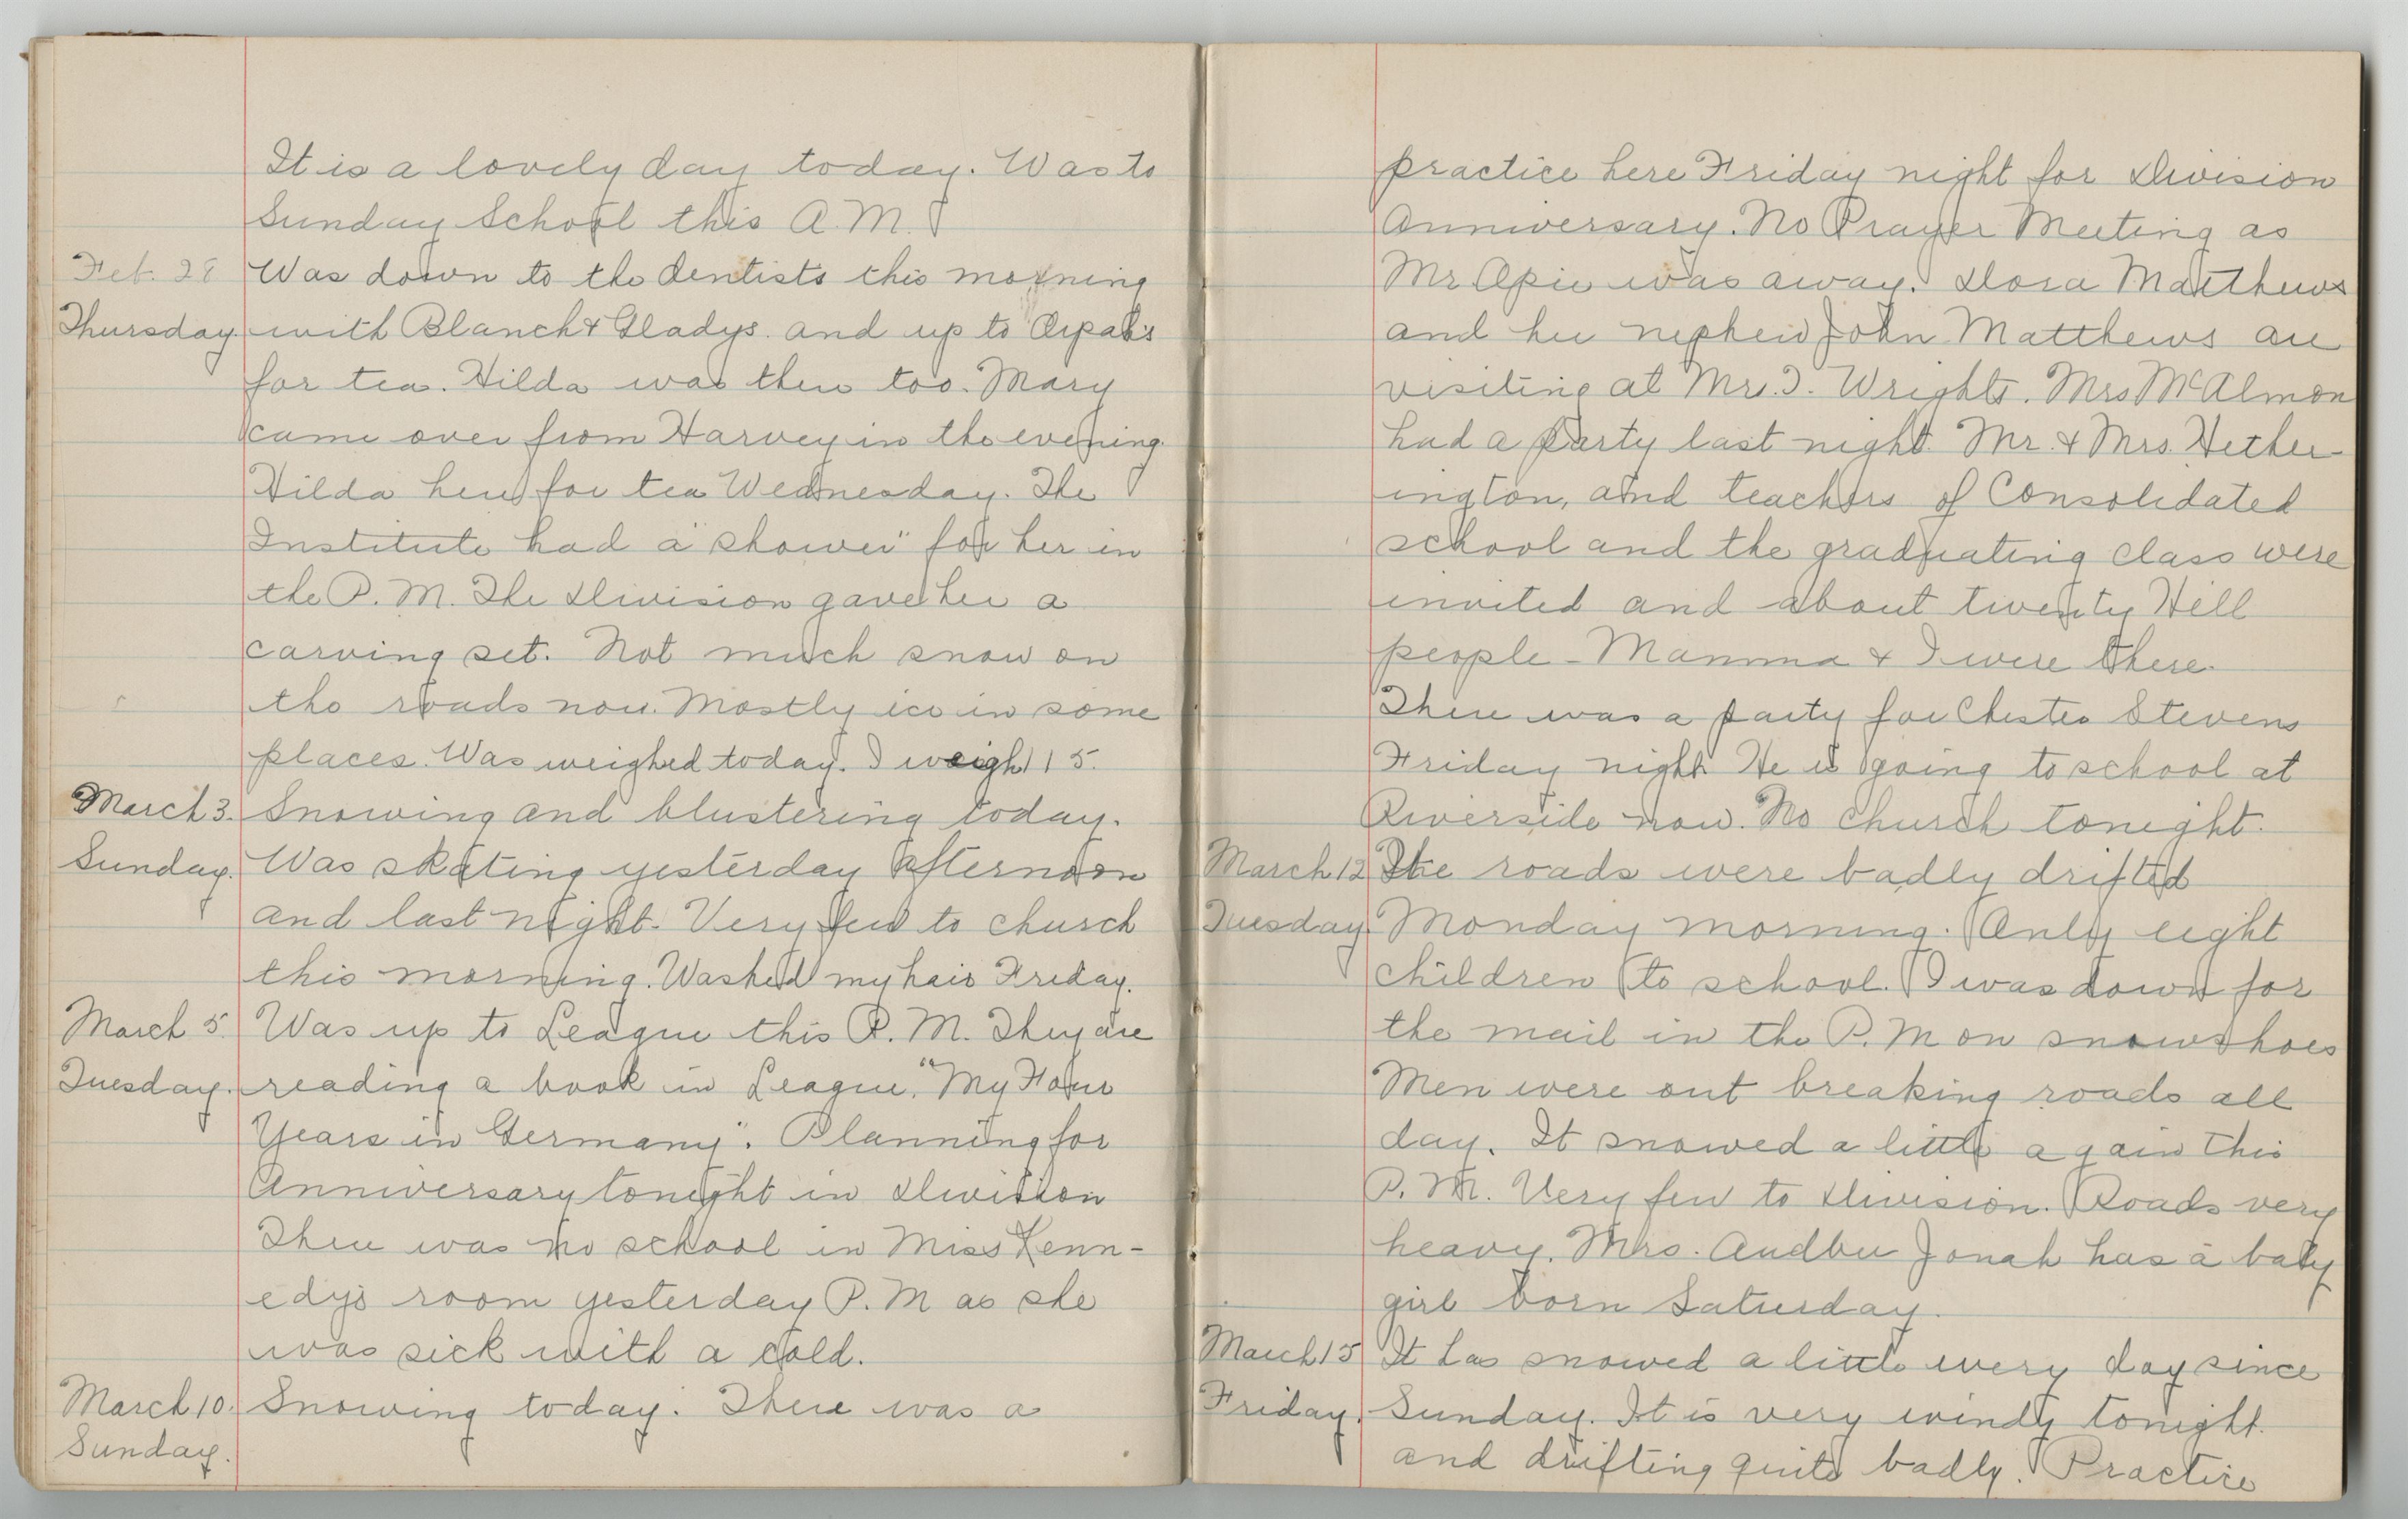 It is a lovely day today. Was to
Sunday School this A.M.
Feb. 28 Was down to the dentists this morning
Thursday. with Blanch & Gladys. and up to
for tea. Hilda was there too. Mary
came over from Harvey in the evening.
Hilda here for tea Wednesday. The
Institute had a "shower" for her in
the P.M. The Division gave her a
carving set. Not much snow on
the roads now. Mostly ice in some
places. Was weighed today. I weigh 115.
March 3. Snowing and blustering today.
Sunday. Was skating yesterday afternoon
and last night. Very few to church
this morning. Washed my hair Friday.
March 5. Was up to League this P.M. They are
Tuesday. reading a book in League. "My Four
Years in Germany". Planning for
Anniversary tonight in Division
There was no school in Miss Kenn-
edy's room yesterday P.M as she
was sick with a cold.
March 10. Snowing today. There was a
Sunday.
practice here Friday night for Division
Anniversary. No Prayer Meeting as
Mr was away. Dora Matthews
and her nephew John Matthews are
visiting at Mrs. I. Wrights. Mrs McAlmon
had a party last night. Mr. & Mrs. Hether-
ington, and teachers of Consolidated
school and the graduating class were
invited and about twenty Hill
people - Mamma & I were there.
There was a party for Chester Stevens
Friday night. He is going to school at
Riverside now. No church tonight.
March 12 The roads were badly drifted
Tuesday. Monday morning. Only eight
children to school. I was down for
the mail in the P.M on snowshoes
Men were out breaking roads all
day. It snowed a little again this
P.M. Very few to Division. Roads very
heavy. Mrs. Audber Jonah has a baby
girl born Saturday.
March 15 It has snowed a little every day since
Friday. Sunday. It is very windy tonight.
and drifting quite badly. Practice